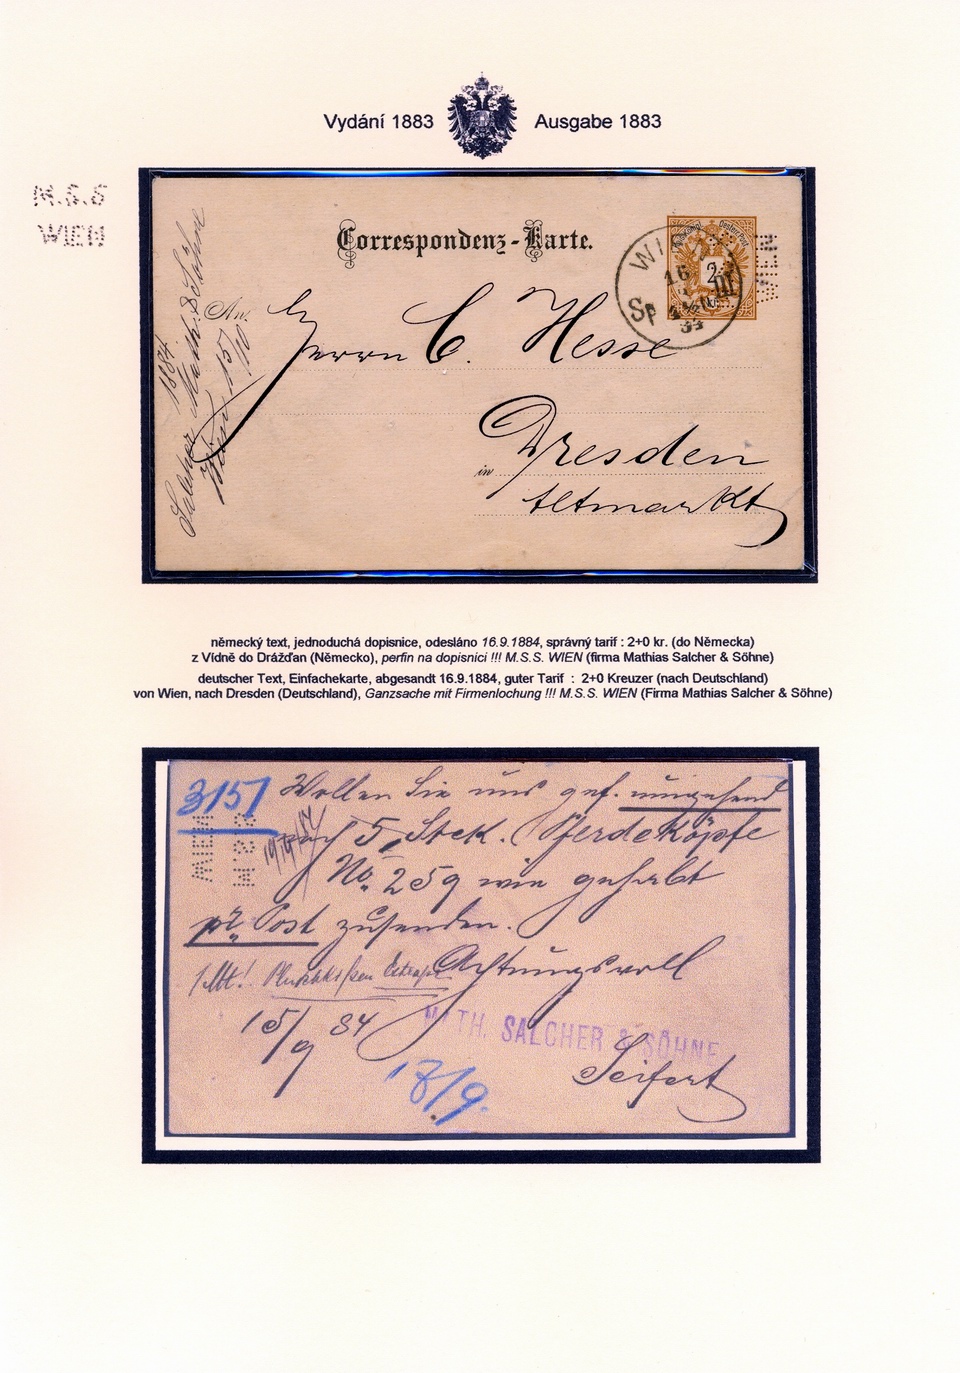 Vydání 1883
Ausgabe 1883
M.S.S
WIEN
Correspondenz-Karte.
WIEN
Herrn C. Hesse
in Dresden
Altmarkt
1884.
Salcher Math. & Söhne
Wien 15/10
německý text, jednoduchá dopisnice, odesláno 16.9.1884, správný tarif : 2+0 kr. (do Německa)
z Vídně do Drážďan (Německo), perfin na dopisnici !!! M.S.S. WIEN (firma Mathias Salcher & Söhne)
deutscher Text, Einfachekarte, abgesandt 16.9.1884, guter Tarif : 2+0 Kreuzer (nach Deutschland)
von Wien, nach Dresden (Deutschland), Ganzsache mit Firmenlochung !!! M.S.S. WIEN (Firma Mathias Salcher & Söhne)
3151
Wollen Sie uns gef. umgehend
noch 5 Stck. Pferdeköpfe
No. 259 wie gehabt
pr. Post zusenden.
Achtungsvoll
15/9 84
MATH. SALCHER & SÖHNE
Seifert
18/9.